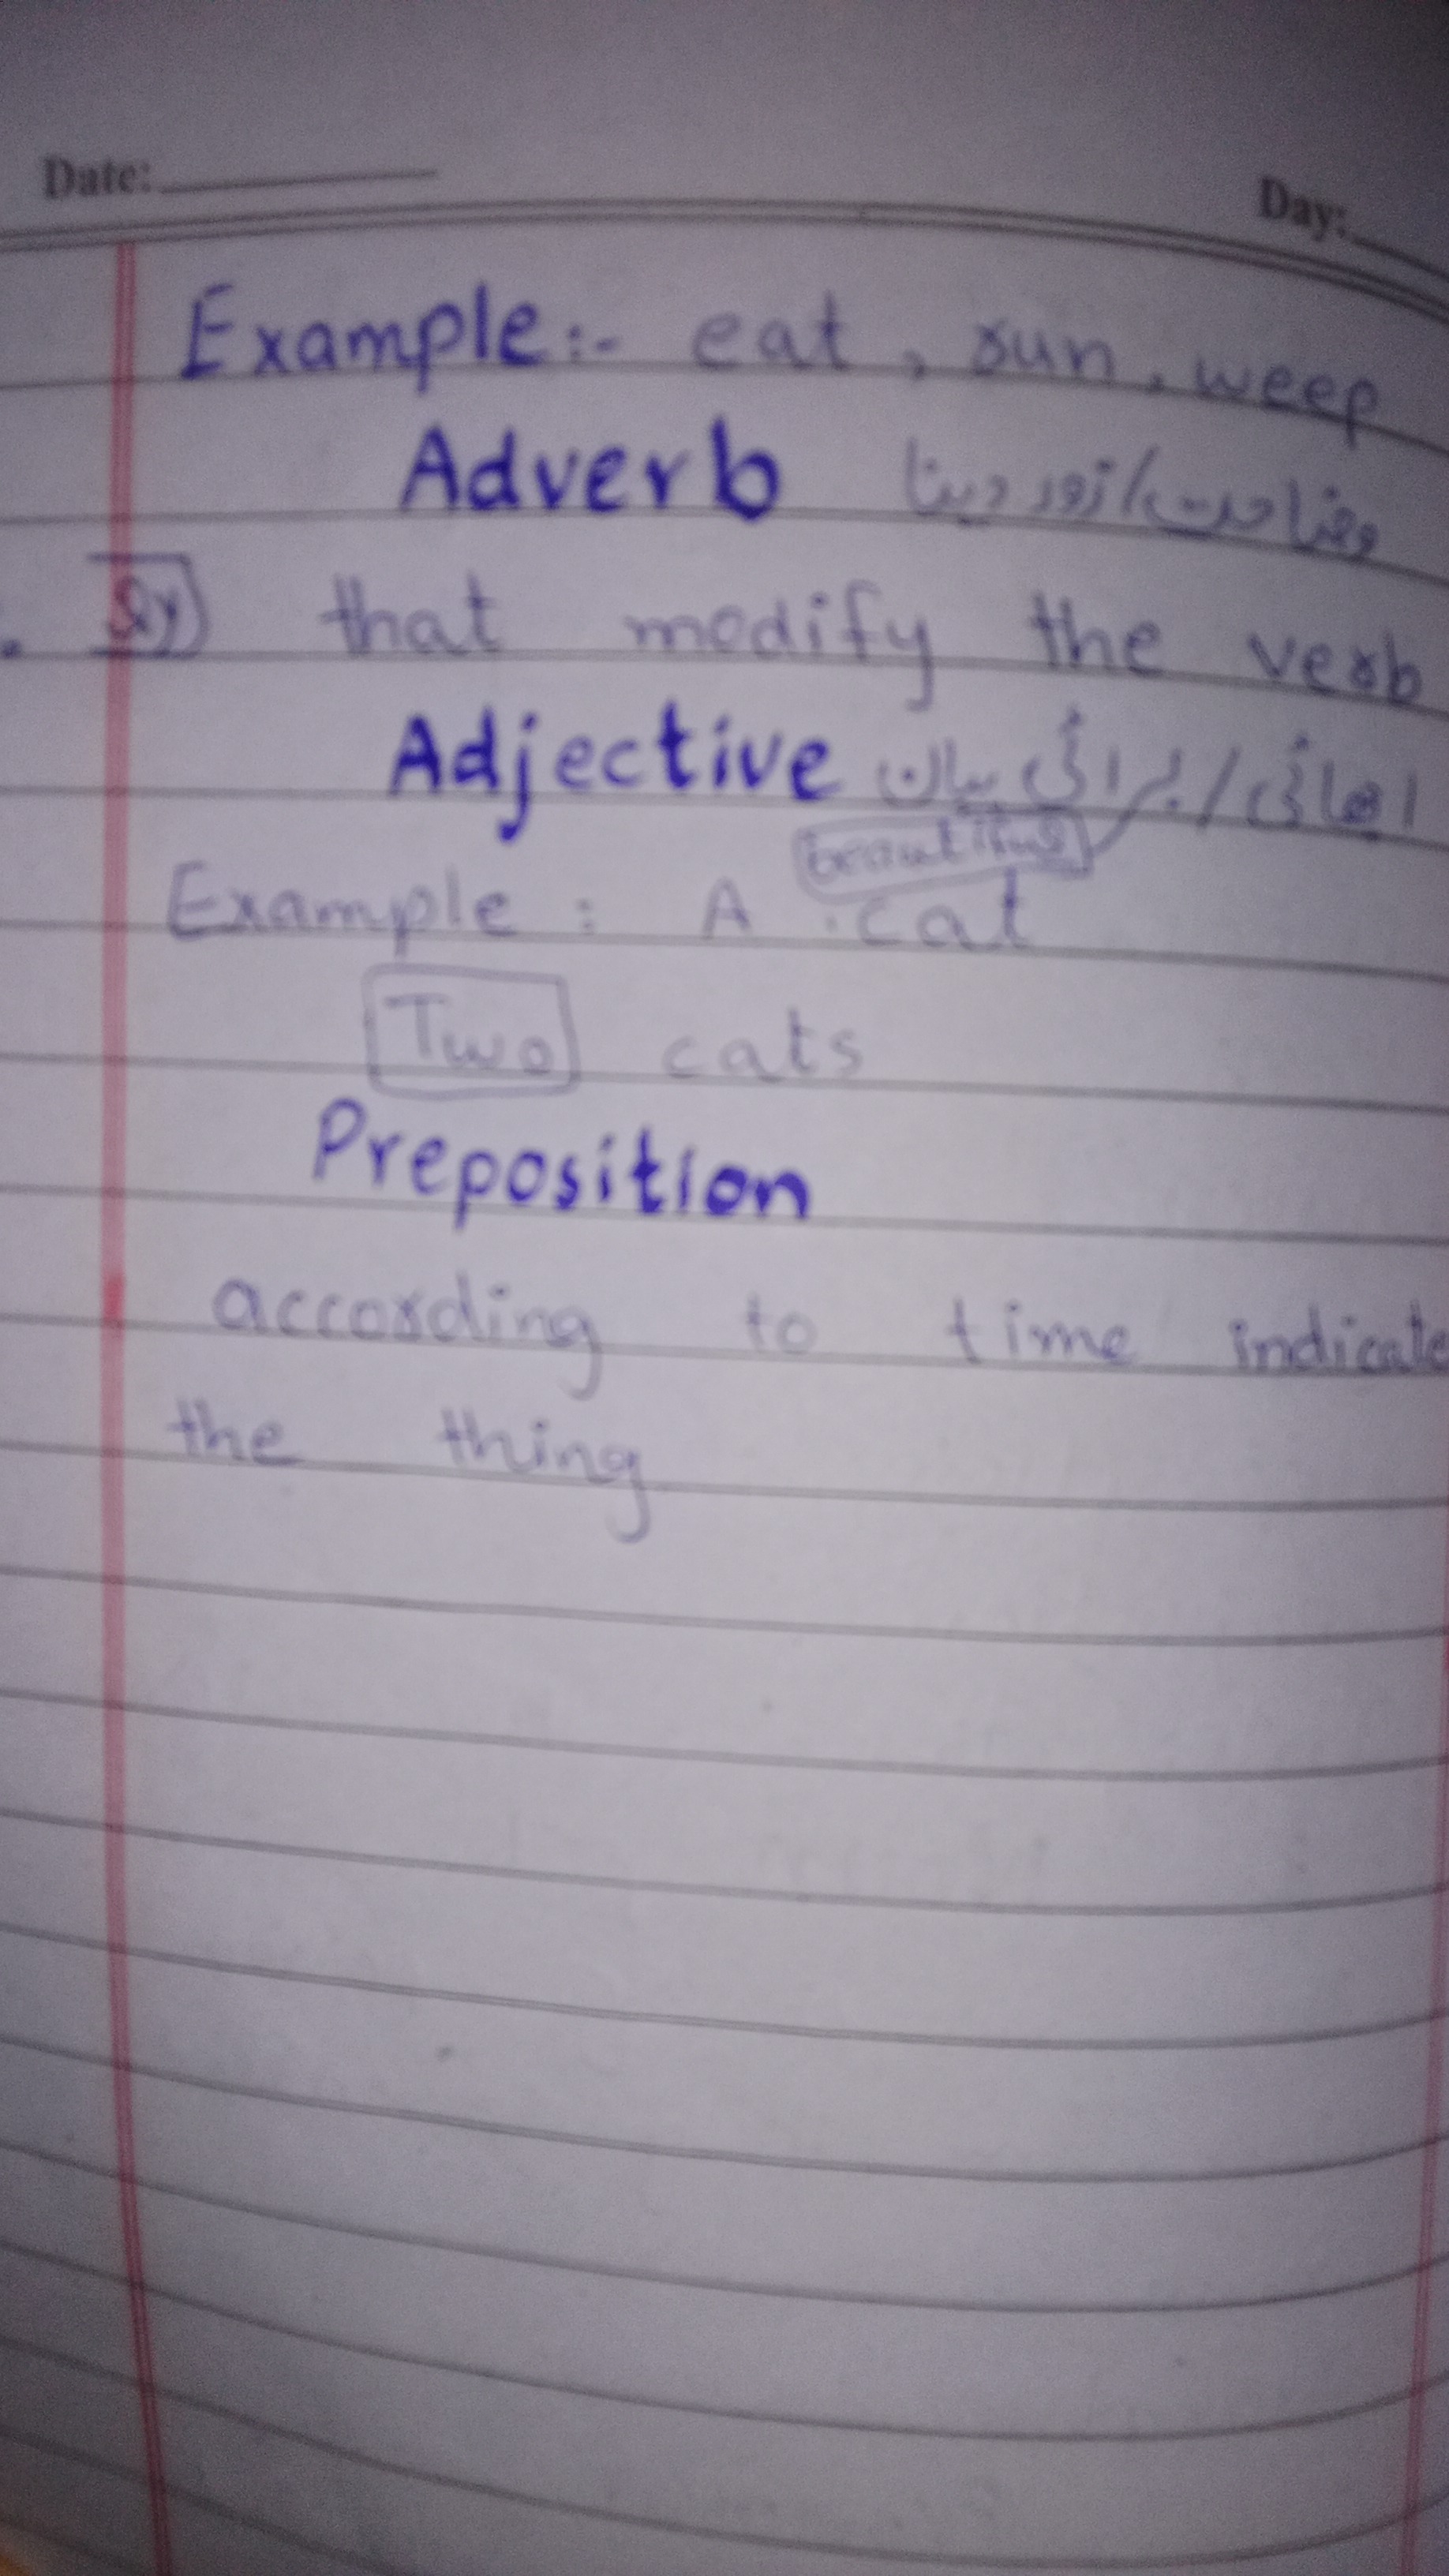 Date:
Day:
Example:- eat, run, weep
Adverb وضاحت/زور دینا
ly that modify the verb
Adjective اچھائی/برائی بیان
beautiful
Example: A cat
Two cats
Preposition
according to time indicate
the thing